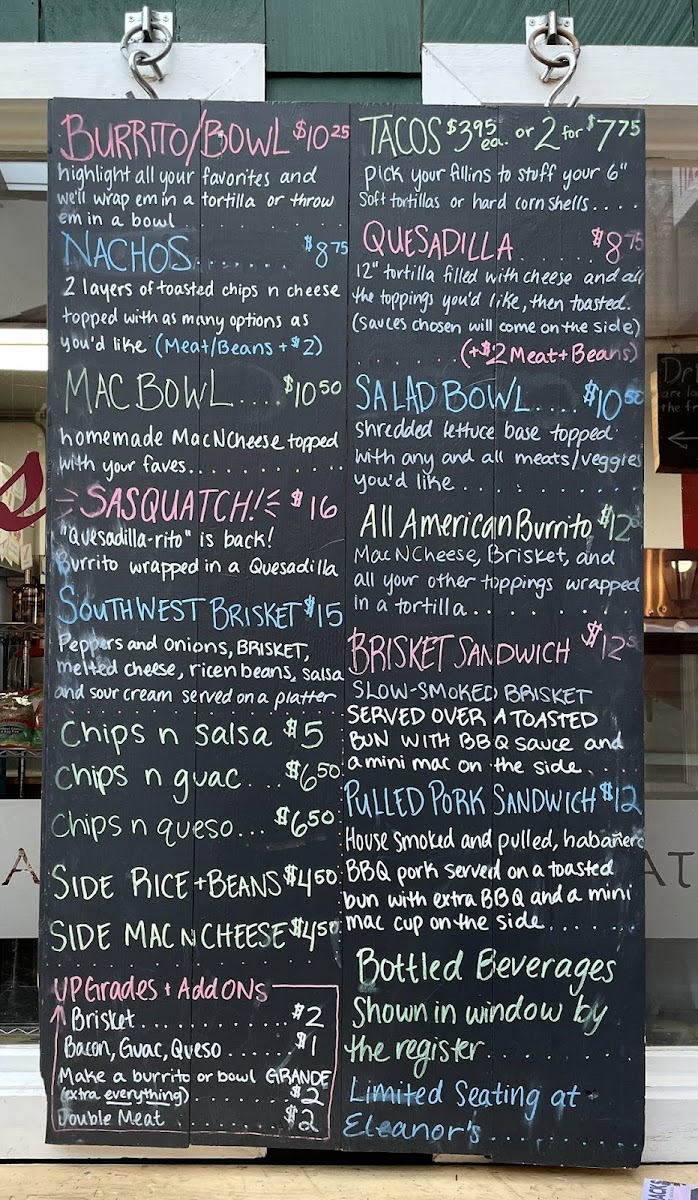 BURRITO/BOWL $10.25
highlight all your favorites and
we'll wrap em in a tortilla or throw
em in a bowl
NACHOS....... $8.75
2 layers of toasted chips n cheese
topped with as many options as
you'd like (Meat/Beans +$2)
MAC BOWL.... $10.50
homemade Mac N Cheese topped
with your faves...........
SASQUATCH! $16
"Quesadilla-rito" is back!
Burrito wrapped in a Quesadilla
SOUTHWEST BRISKET $15
Peppers and onions, BRISKET,
melted cheese, rice n beans, salsa
and sour cream served on a platter
Chips n salsa $5
Chips n guac... $6.50
Chips n queso... $6.50
SIDE RICE + BEANS $4.50
SIDE MAC N CHEESE $4.50
UPGrades + Add ONs
Brisket............ $2
Bacon, Guac, Queso...... $1
Make a burrito or bowl GRANDE
(extra everything)......... $2
Double Meat ......... $2
TACOS $3.95 ea. or 2 for $7.75
pick your fillins to stuff your 6"
Soft tortillas or hard corn shells....
QUESADILLA....... $8.75
12" tortilla filled with cheese and all
the toppings you'd like, then toasted.
(sauces chosen will come on the side)
........ (+$2 Meat + Beans)
SALAD BOWL.... $10.50
shredded lettuce base topped
with any and all meats/veggies
you'd like..........
All American Burrito $12.50
Mac N Cheese, Brisket, and
all your other toppings wrapped
in a tortilla..........
BRISKET SANDWICH $12.50
SLOW-SMOKED BRISKET
SERVED OVER A TOASTED
BUN WITH BBQ sauce and
a mini mac on the side...
PULLED PORK SANDWICH $12
House smoked and pulled, habañero
BBQ pork served on a toasted
bun with extra BBQ and a mini
mac cup on the side.......
Bottled Beverages
Shown in window by
the register..........
Limited Seating at
Eleanor's..........